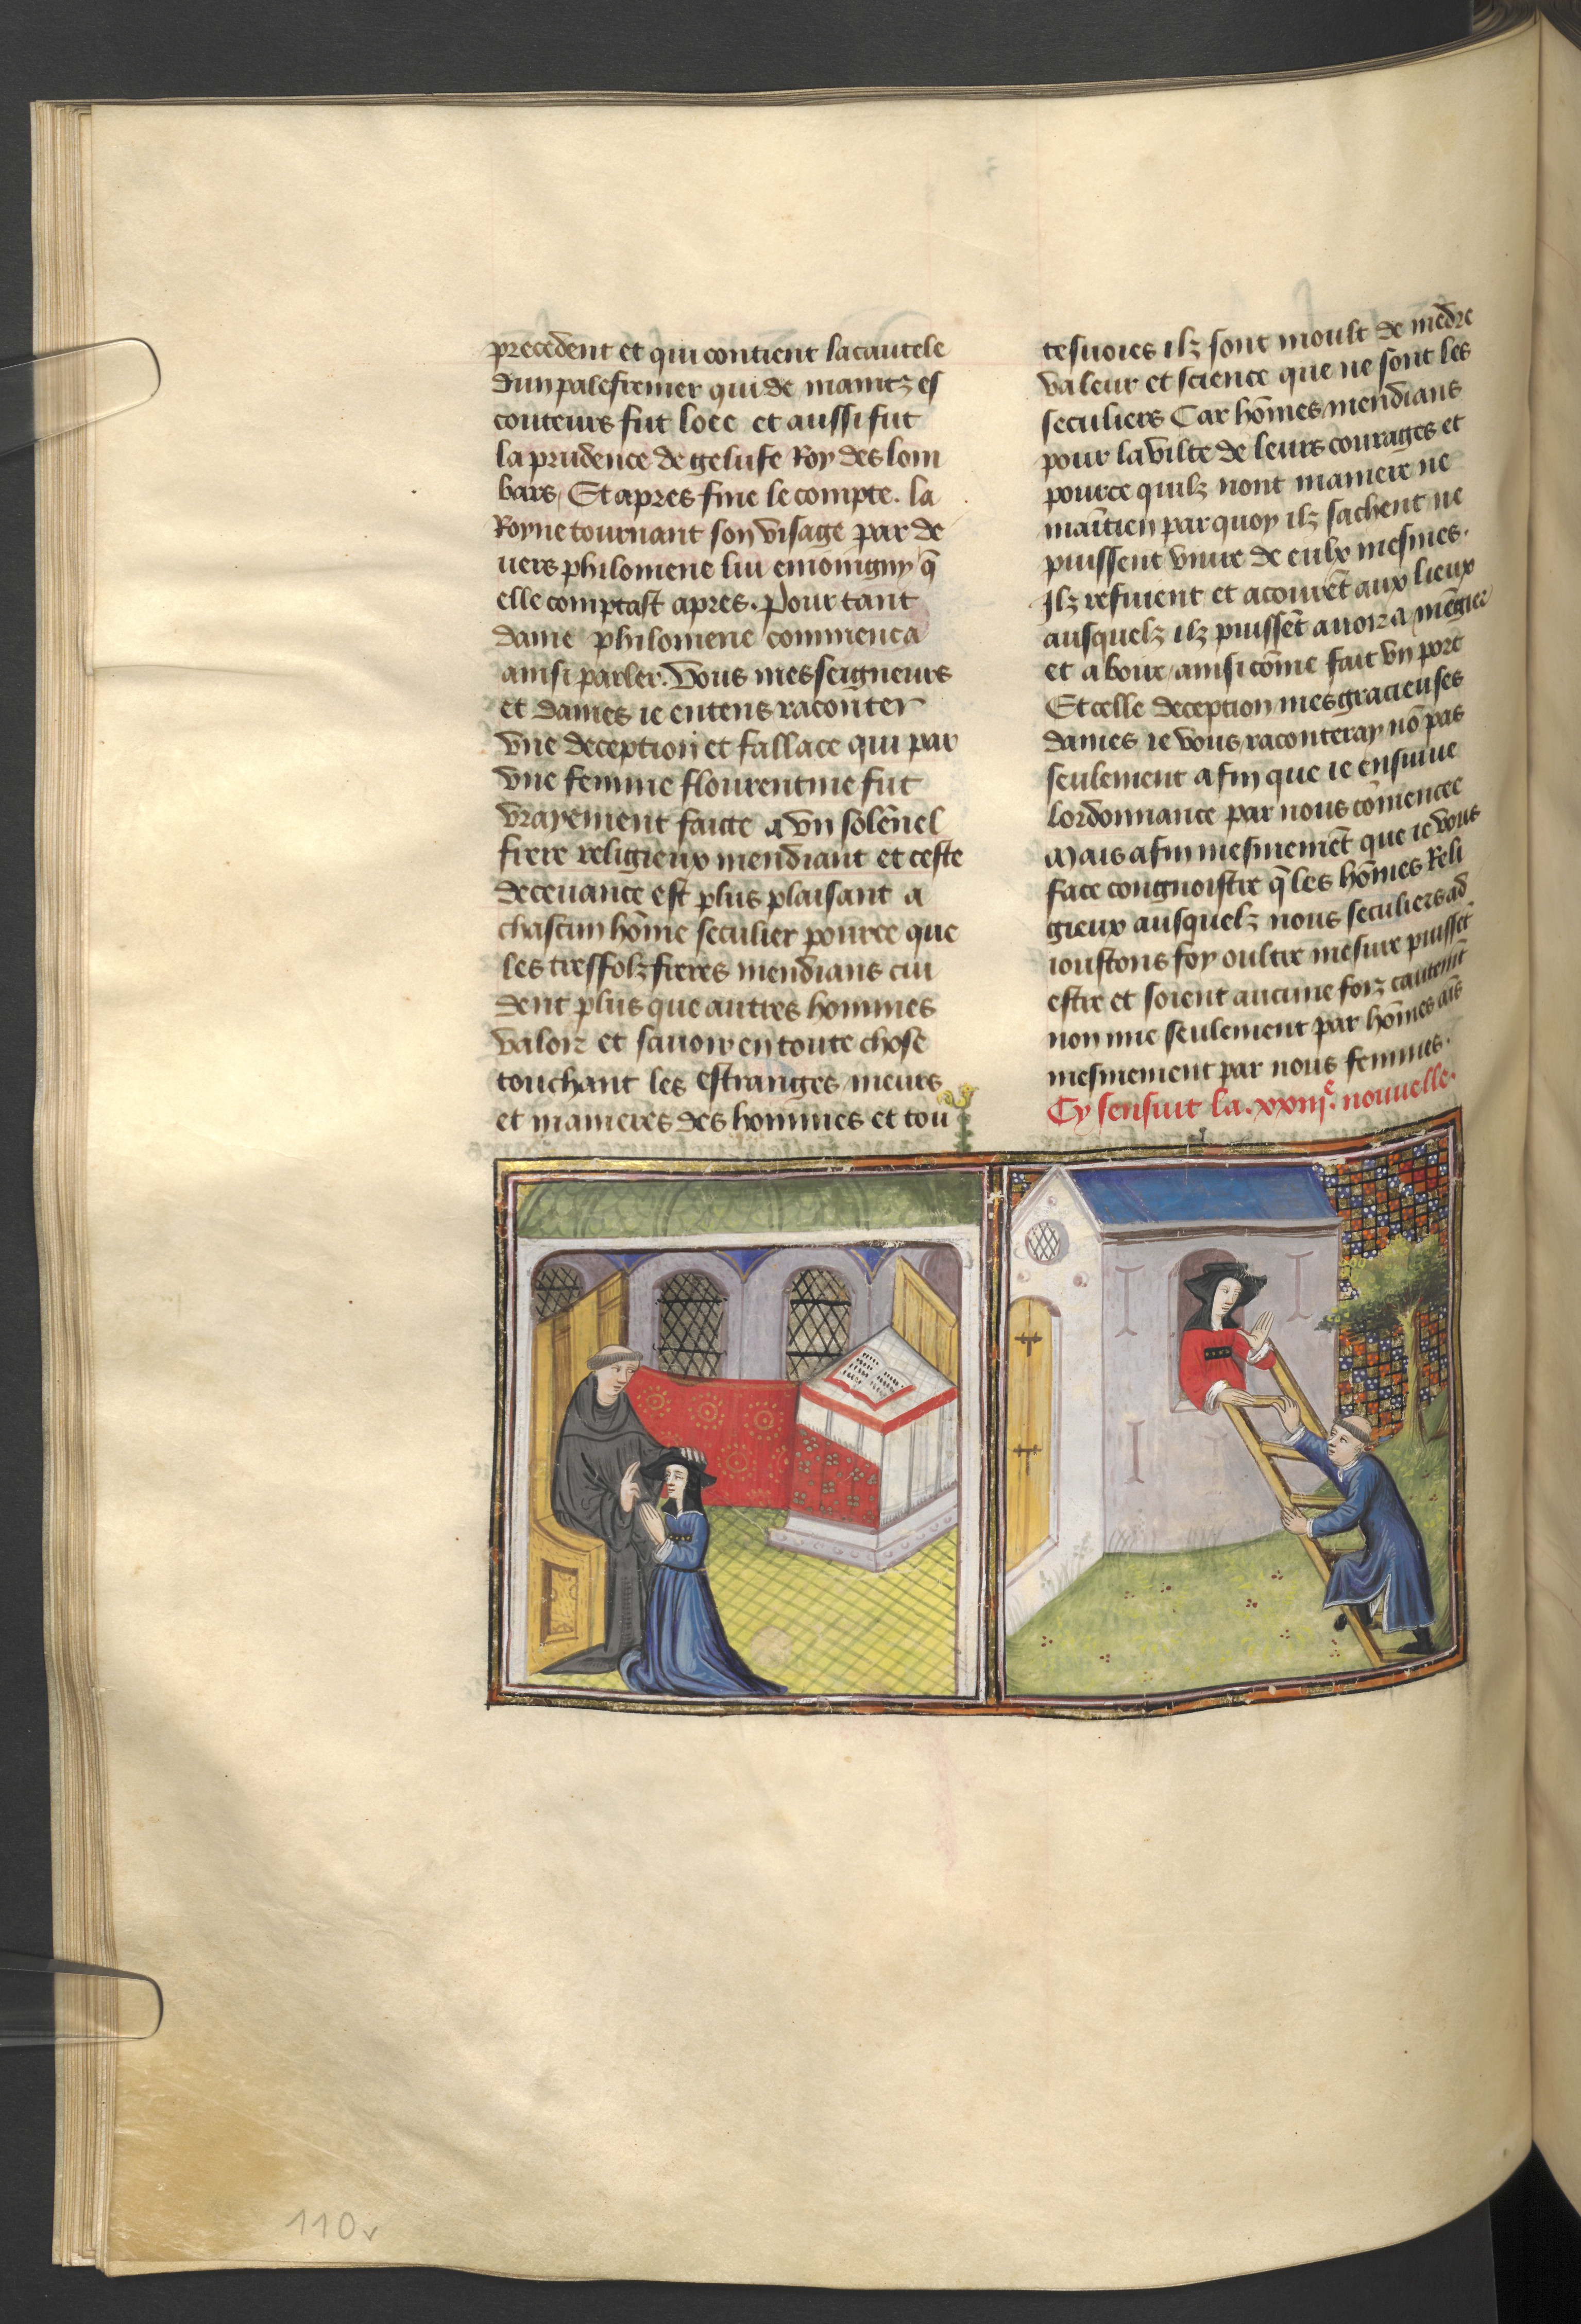 precedent et qui contient la cautele
dun palefrenier qui de maintz es
couteurs fut loee et aussi fut
la prudence de gelufe Roy des lom
bars, Et apres fine le compte. la
Royne tournant son visage par de
uers philomene lui enioinigny q̃
elle comptast apres. Pour tant
dame philomene commenca
ainsi parler. Vous mes seigneurs
et dames ie entens raconter
vne deception et fallace qui par
vne femme flourentine fut
vrayement faicte a vn solẽnel
frere religieux mendiant et ceste
deceuance est plus plaisant a
chascun hõme seculier pource que
les tresfolz freres mendians cui
dent plus que autres hommes
valoir et sauoir en toute chose
touchant les estranges meurs
et manieres des hommes et tou
tesuoies ilz sont moult de mẽdre
valeur et science que ne sont les
seculiers Car hõmes mendians
pour la vilte de leurs courages et
pource quilz nont maniere ne
maĩtien par quoy ilz sachent ne
puissent viure de eulx mesmes.
Ilz refuient et acourẽt aux lieux
ausquelz ilz puissẽt auoir a mẽgier
et a boire, ainsi cõme fait vn porc
Et celle deception mes gracieuses
dames ie vous raconteray nõ pas
seulement afin que ie ensuiue
lordonnance par nous cõmencee
Mais afin mesmemẽt que ie vous
face congnoistre q̃ les hõmes Reli
gieux ausquelz nous seculiers ad
ioustons foy oultre mesure puissẽt
estre et soient aucune foiz cautemt̃
non mie seulement par hõmes ais̃
mesmement par nous femmes.
Cy sensuit la .xxiijᵉ. nouuelle.
110v